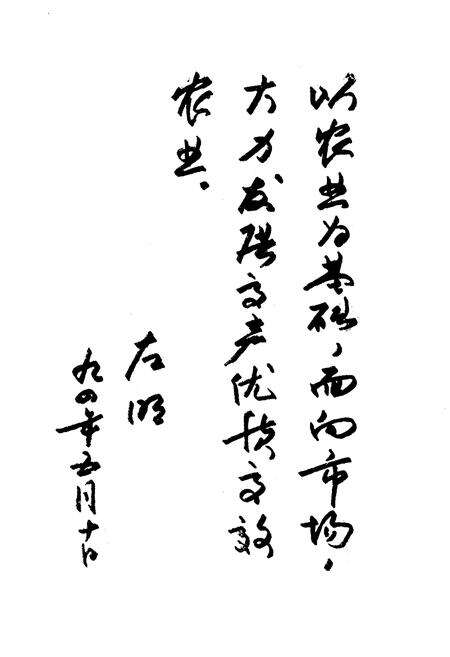 以农业为基础，面向市场，
大力发展高产优质高效
农业。
左明
九四年五月十日